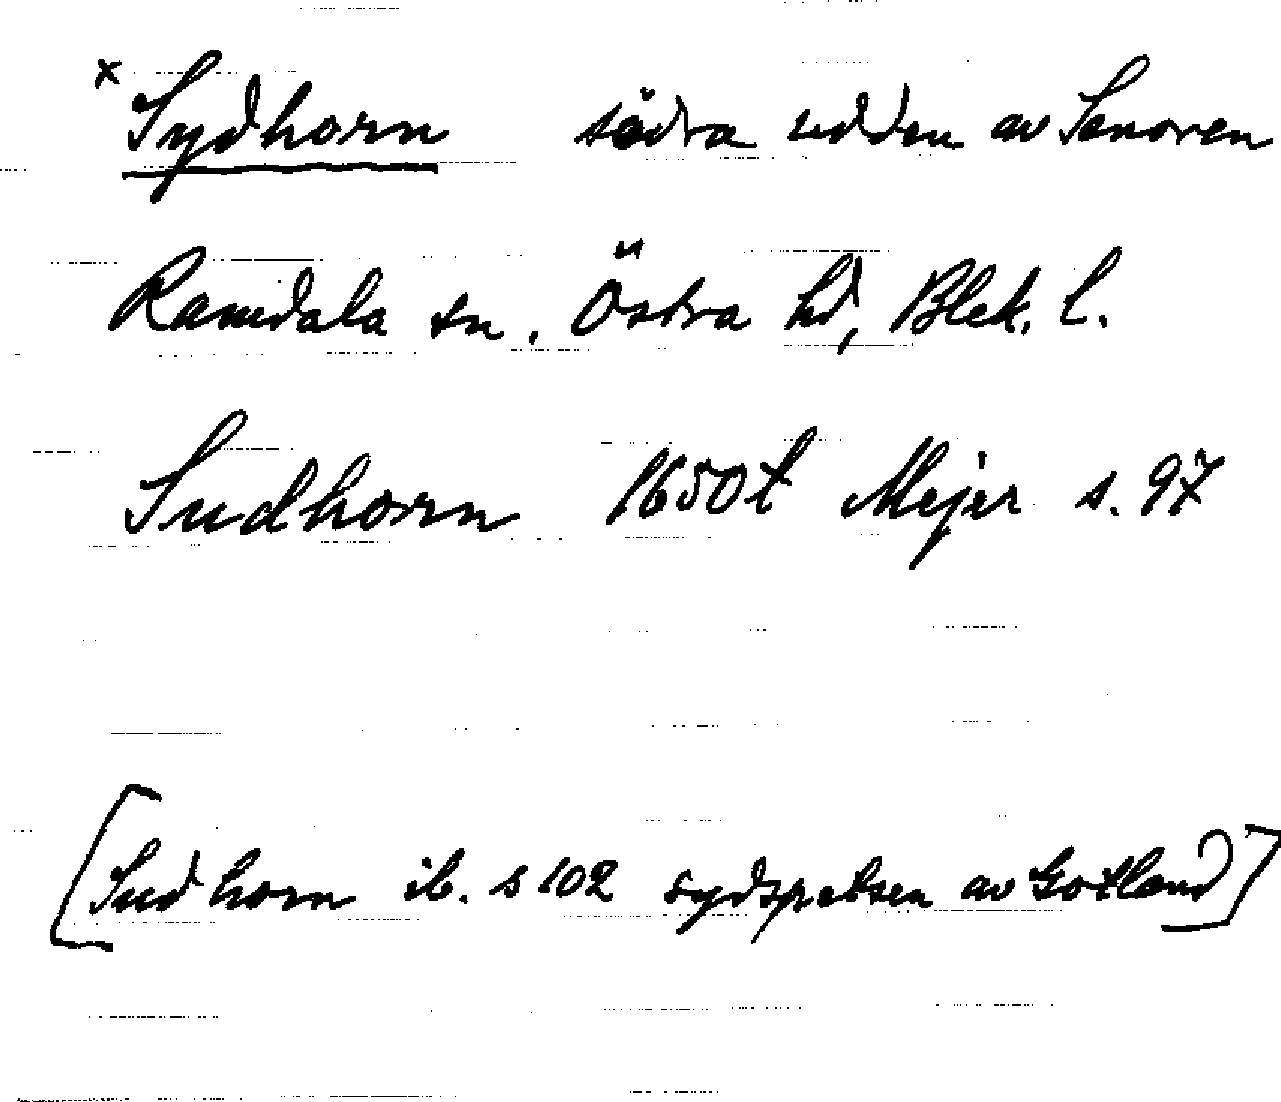 x Sydhorn södra udden av Senoren
Ramdala sn, Östra hd, Blek. l.
Sudhorn 1650t Mejer s. 97
[Sudhorn ib. s 102 sydspetsen av Gotland]